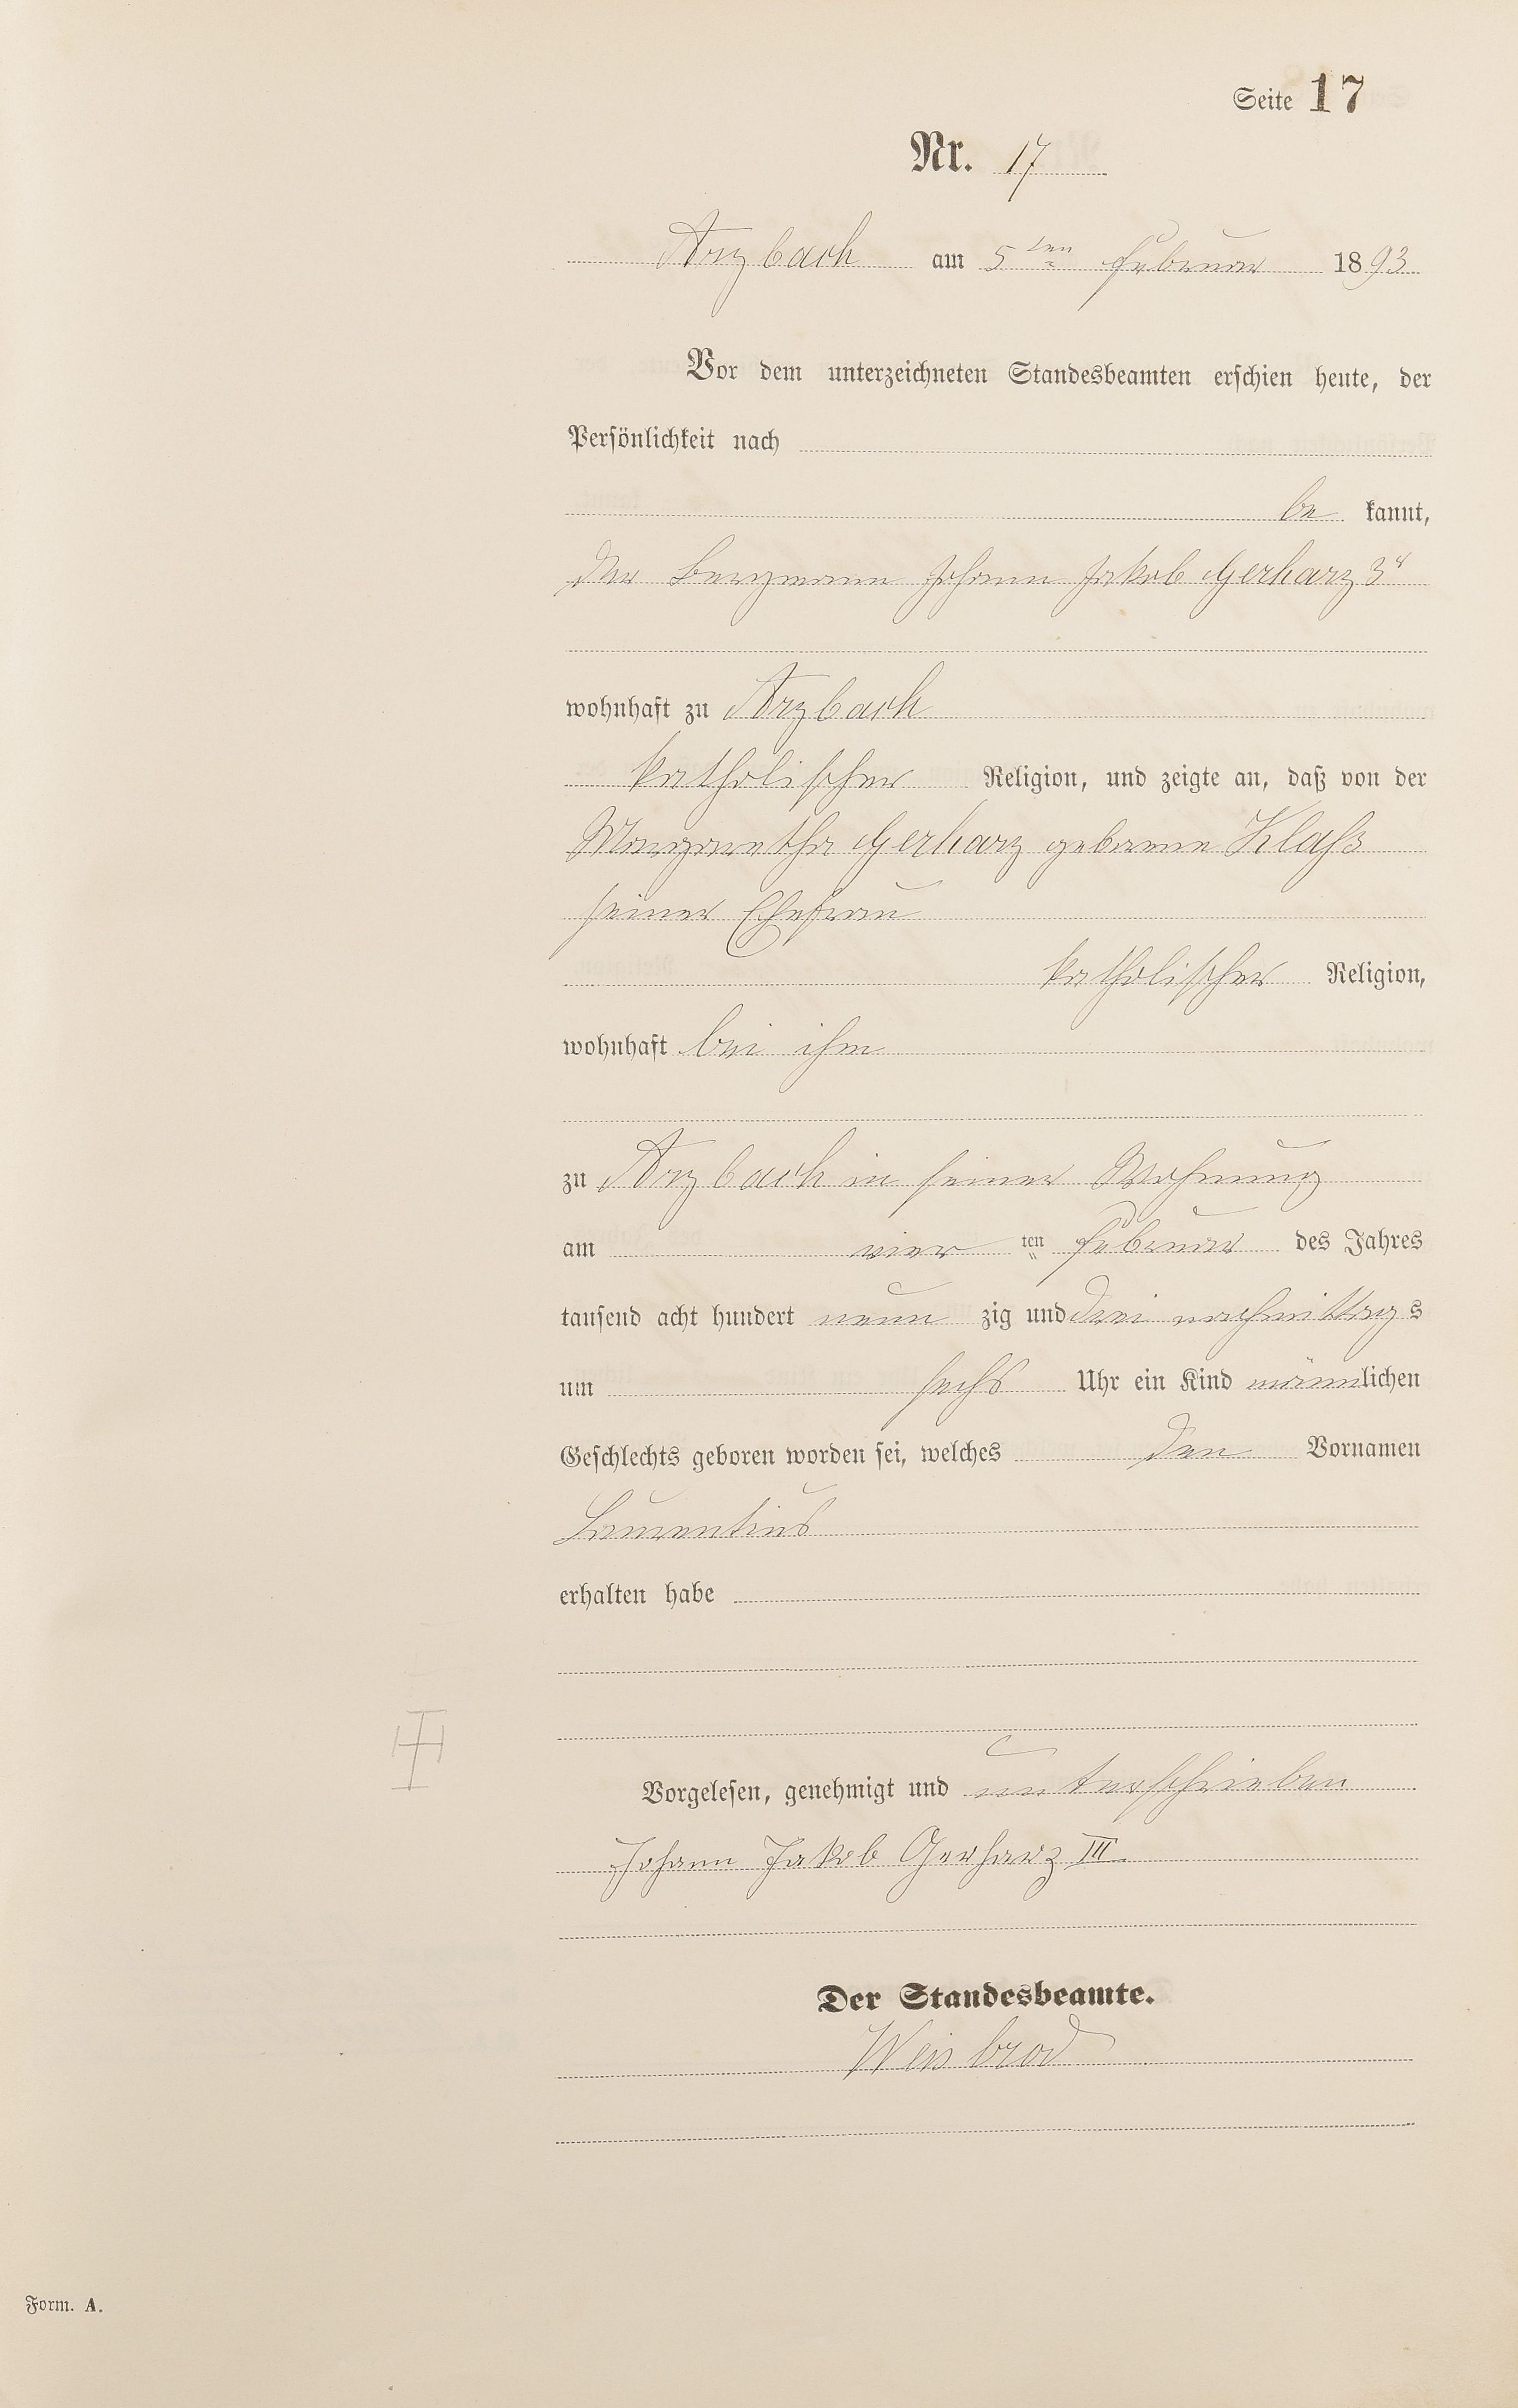 Seite 17
Nr. 17
Arzbach am 5ten Februar 1893
Vor dem unterzeichneten Standesbeamten erschien heute, der
Persönlichkeit nach
be kannt,
der Bergmann Johann Jakob Gerharz 3r
wohnhaft zu Arzbach
katholischer Religion, und zeigte an, daß von der
Margaretha Gerharz geborene Klaß
seiner Ehefrau
katholischer Religion,
wohnhaft bei ihm
zu Arzbach in seiner Wohnung
am vier ten Februar des Jahres
tausend acht hundert neun zig und drei nachmittags
um sechs Uhr ein Kind männlichen
Geschlechts geboren worden sei, welches den Vornamen
Laurentius
erhalten habe
Vorgelesen, genehmigt und unterschrieben
Johann Jakob Gerharz III
Der Standesbeamte.
Weisbrod
Form. A.